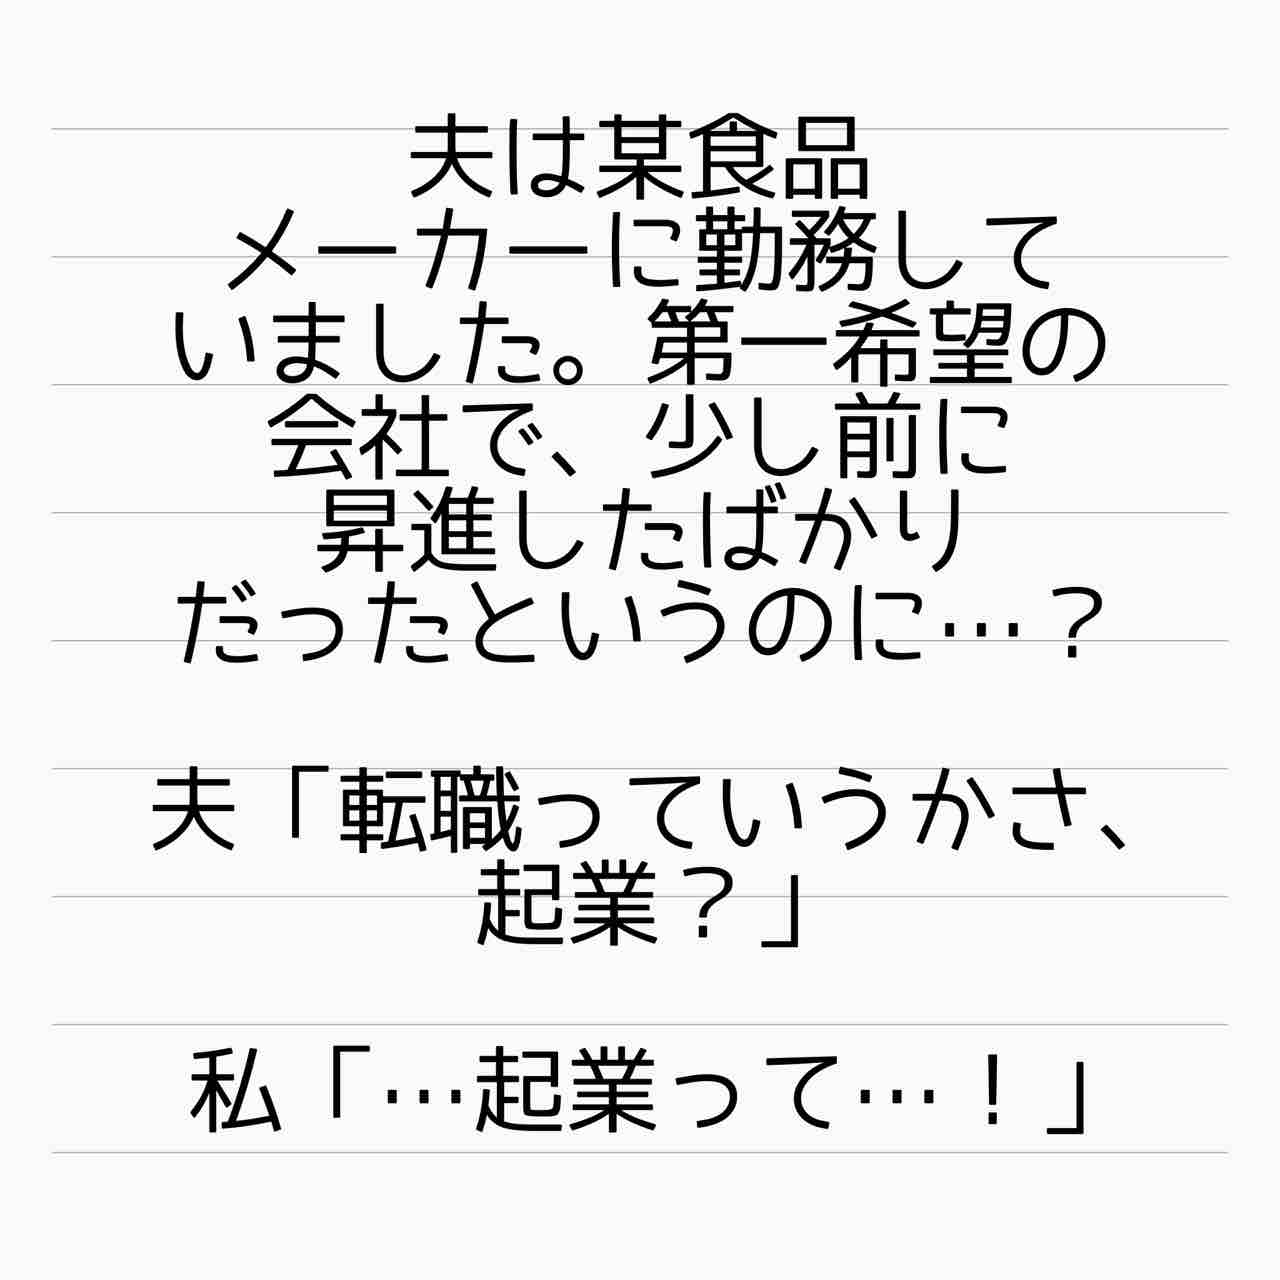 夫は某食品
メーカーに勤務して
いました。第一希望の
会社で、少し前に
昇進したばかり
だったというのに…？
夫「転職っていうかさ、
起業？」
私「…起業って…！」